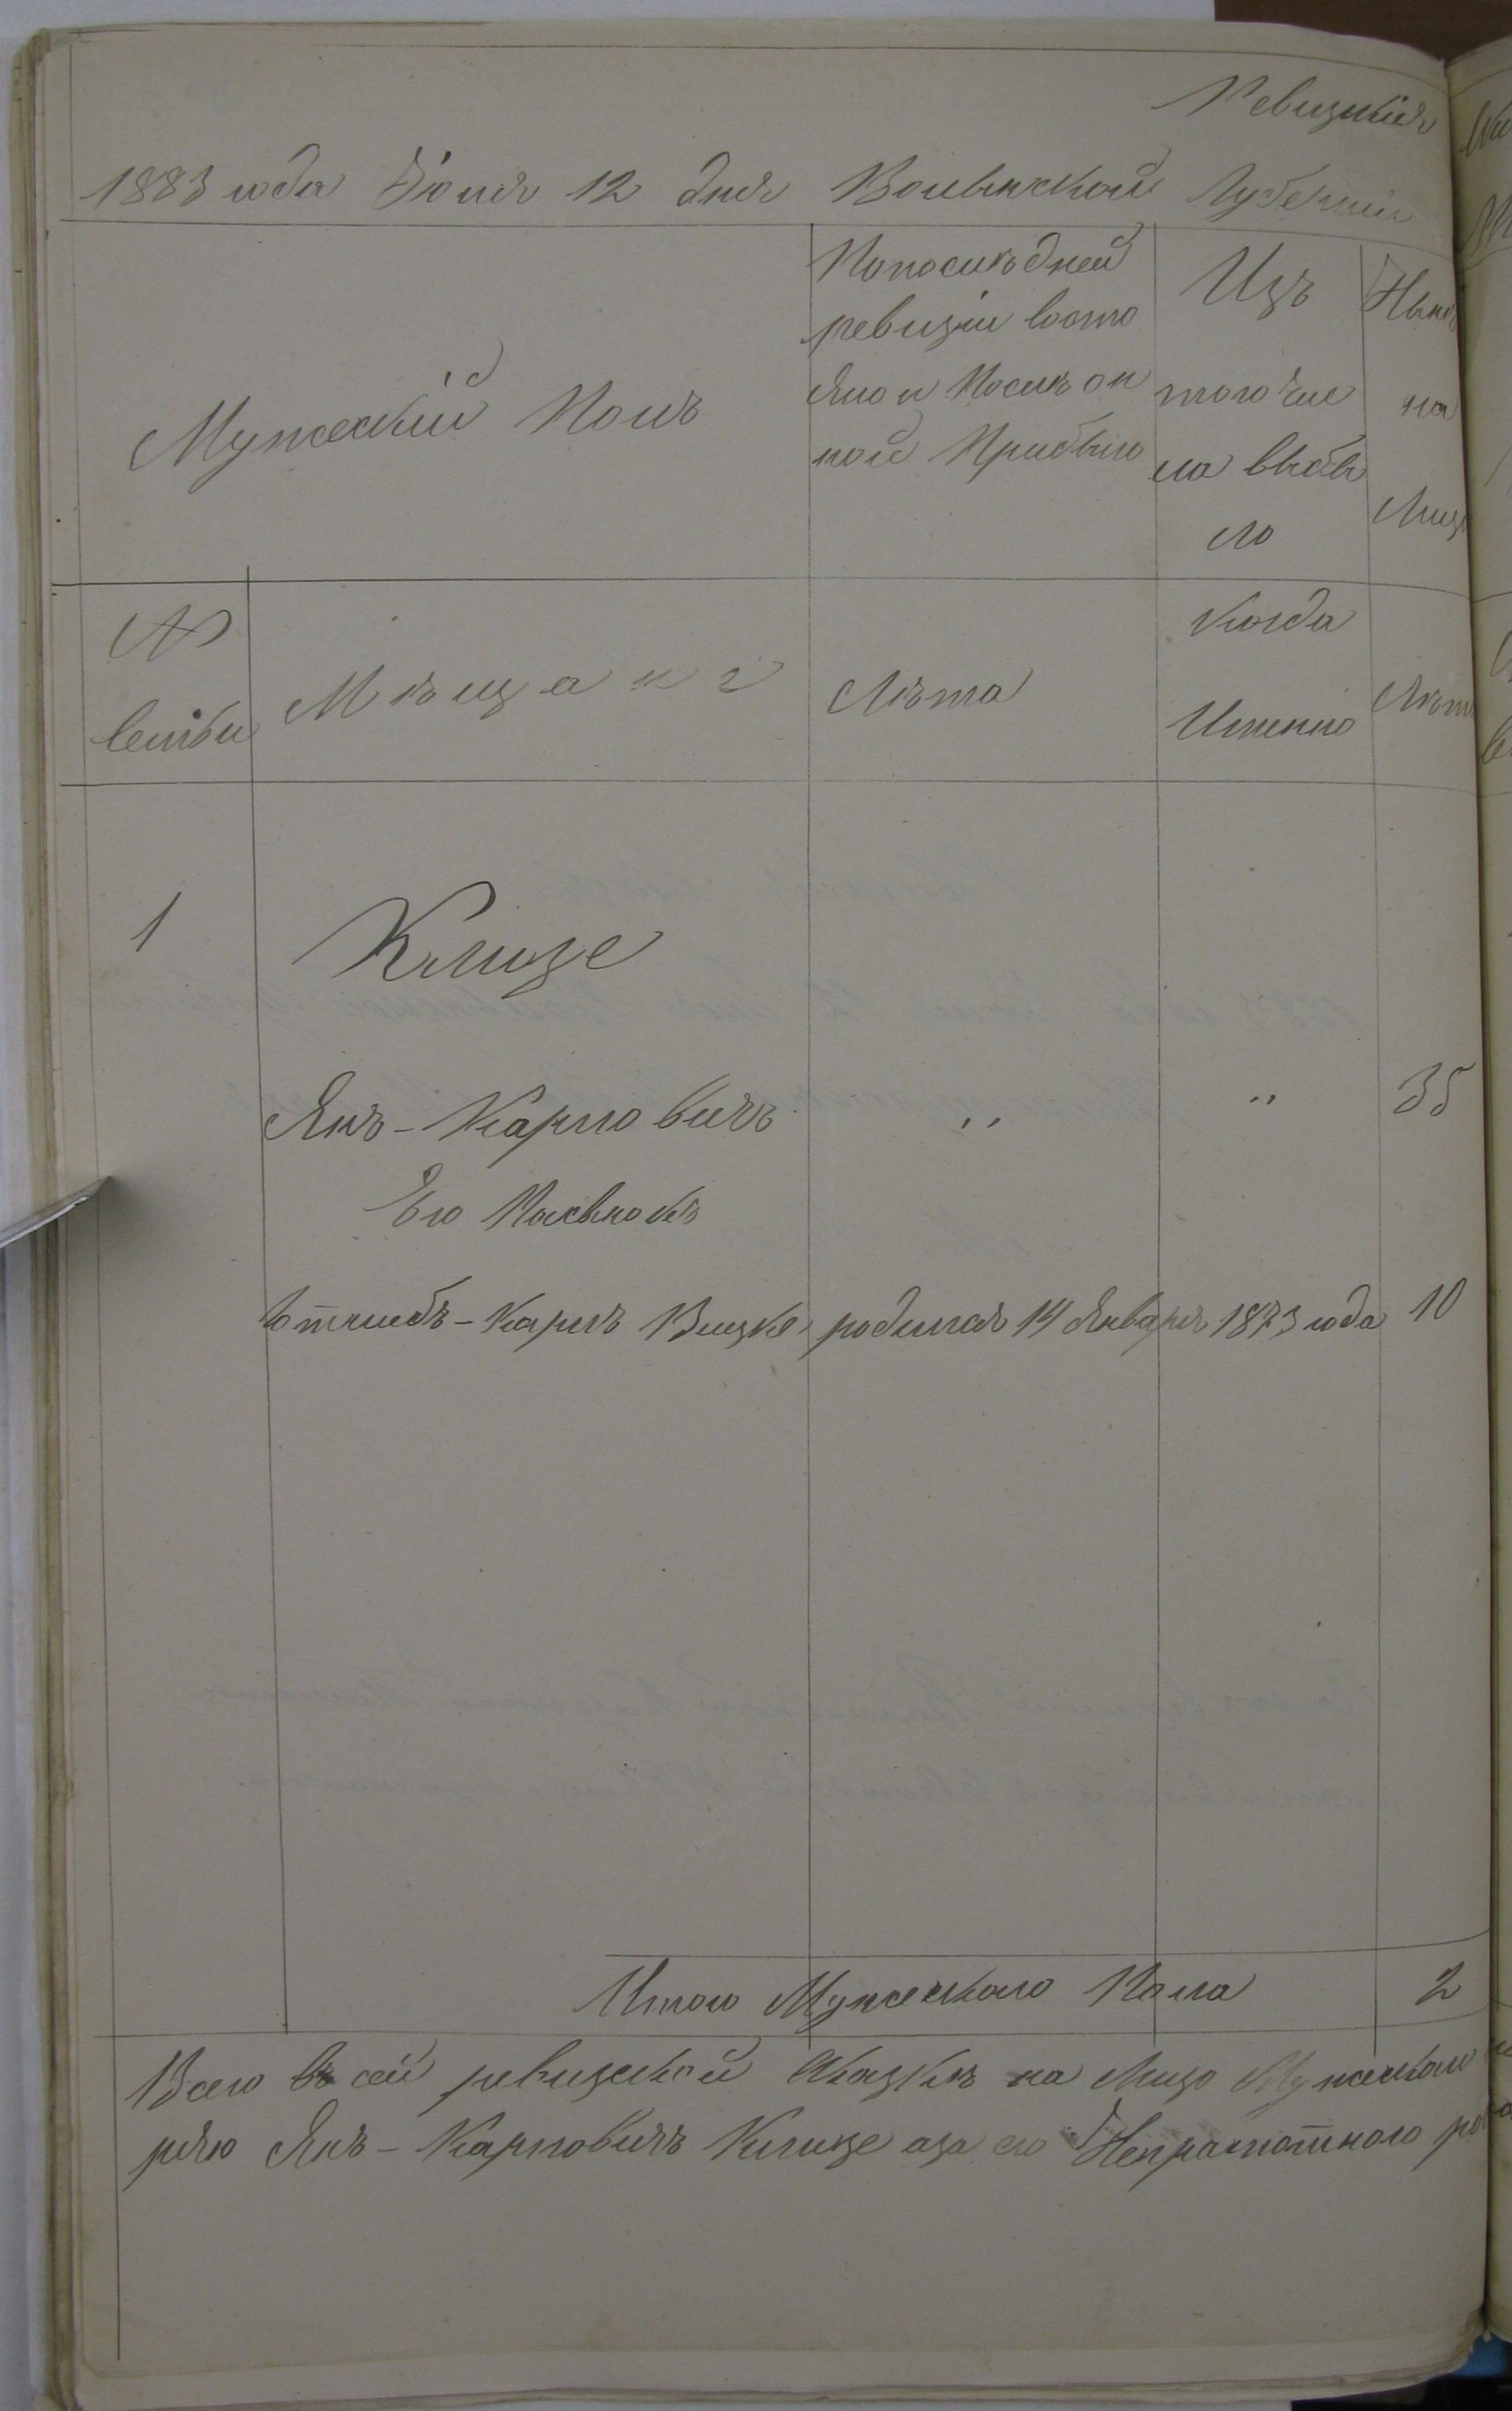 Ревизкия
1883 года Іюня 12 дня Волынской Губерніи
Мужескій Полъ
Попослѣдней
ревизіи состо
яло и Послѣ он
ной Прибыло
Изъ
того чис
ла выбы
ло
Нын
на
Лиц
№
семьи
Мѣщане
Лѣта
Когда
Именно
Лѣт
1
Клизе
Янъ-Карловичъ
"
"
35
Его Пасынокъ
Карлъ родился 14 Января 1873 года 10
Итого Мужескаго Пола 2
Всего въ сей ревизской Сказкѣ на Лицо Мужескаго
Янъ-Карловичъ Клизе аза его Неграмотнаго